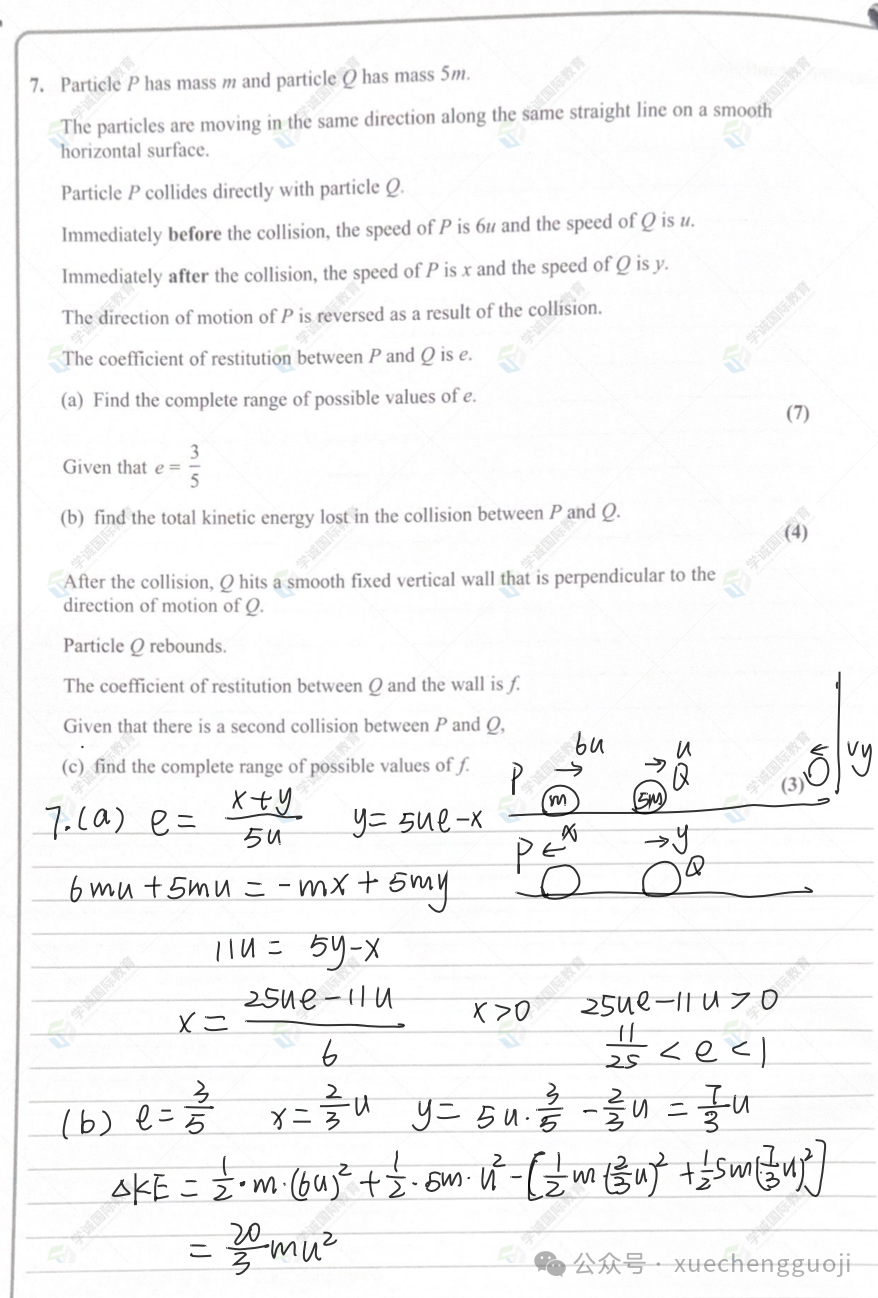 7. Particle P has mass m and particle Q has mass 5m.
The particles are moving in the same direction along the same straight line on a smooth
horizontal surface.
Particle P collides directly with particle Q.
Immediately before the collision, the speed of P is 6u and the speed of Q is u.
Immediately after the collision, the speed of P is x and the speed of Q is y.
The direction of motion of P is reversed as a result of the collision.
The coefficient of restitution between P and Q is e.
(a) Find the complete range of possible values of e.
(7)
Given that e = 3/5
(b) find the total kinetic energy lost in the collision between P and Q.
(4)
After the collision, Q hits a smooth fixed vertical wall that is perpendicular to the
direction of motion of Q.
Particle Q rebounds.
The coefficient of restitution between Q and the wall is f.
Given that there is a second collision between P and Q,
(c) find the complete range of possible values of f.
(3)
P 6u → m → u Q 5m ← vy
P ← x → y Q
7.(a) e = (x+y)/5u y = 5ue-x
6mu + 5mu = -mx + 5my
11u = 5y-x
x = (25ue-11u)/6 x>0 25ue-11u>0
11/25 < e < 1
(b) e = 3/5 x = 2/3 u y = 5u·3/5 - 2/3 u = 7/3 u
△KE = 1/2·m·(6u)² + 1/2·5m·u² - [1/2 m (2/3 u)² + 1/2 5m (7/3 u)²]
= 20/3 mu²
公众号 · xuechengguoji
学诚国际教育